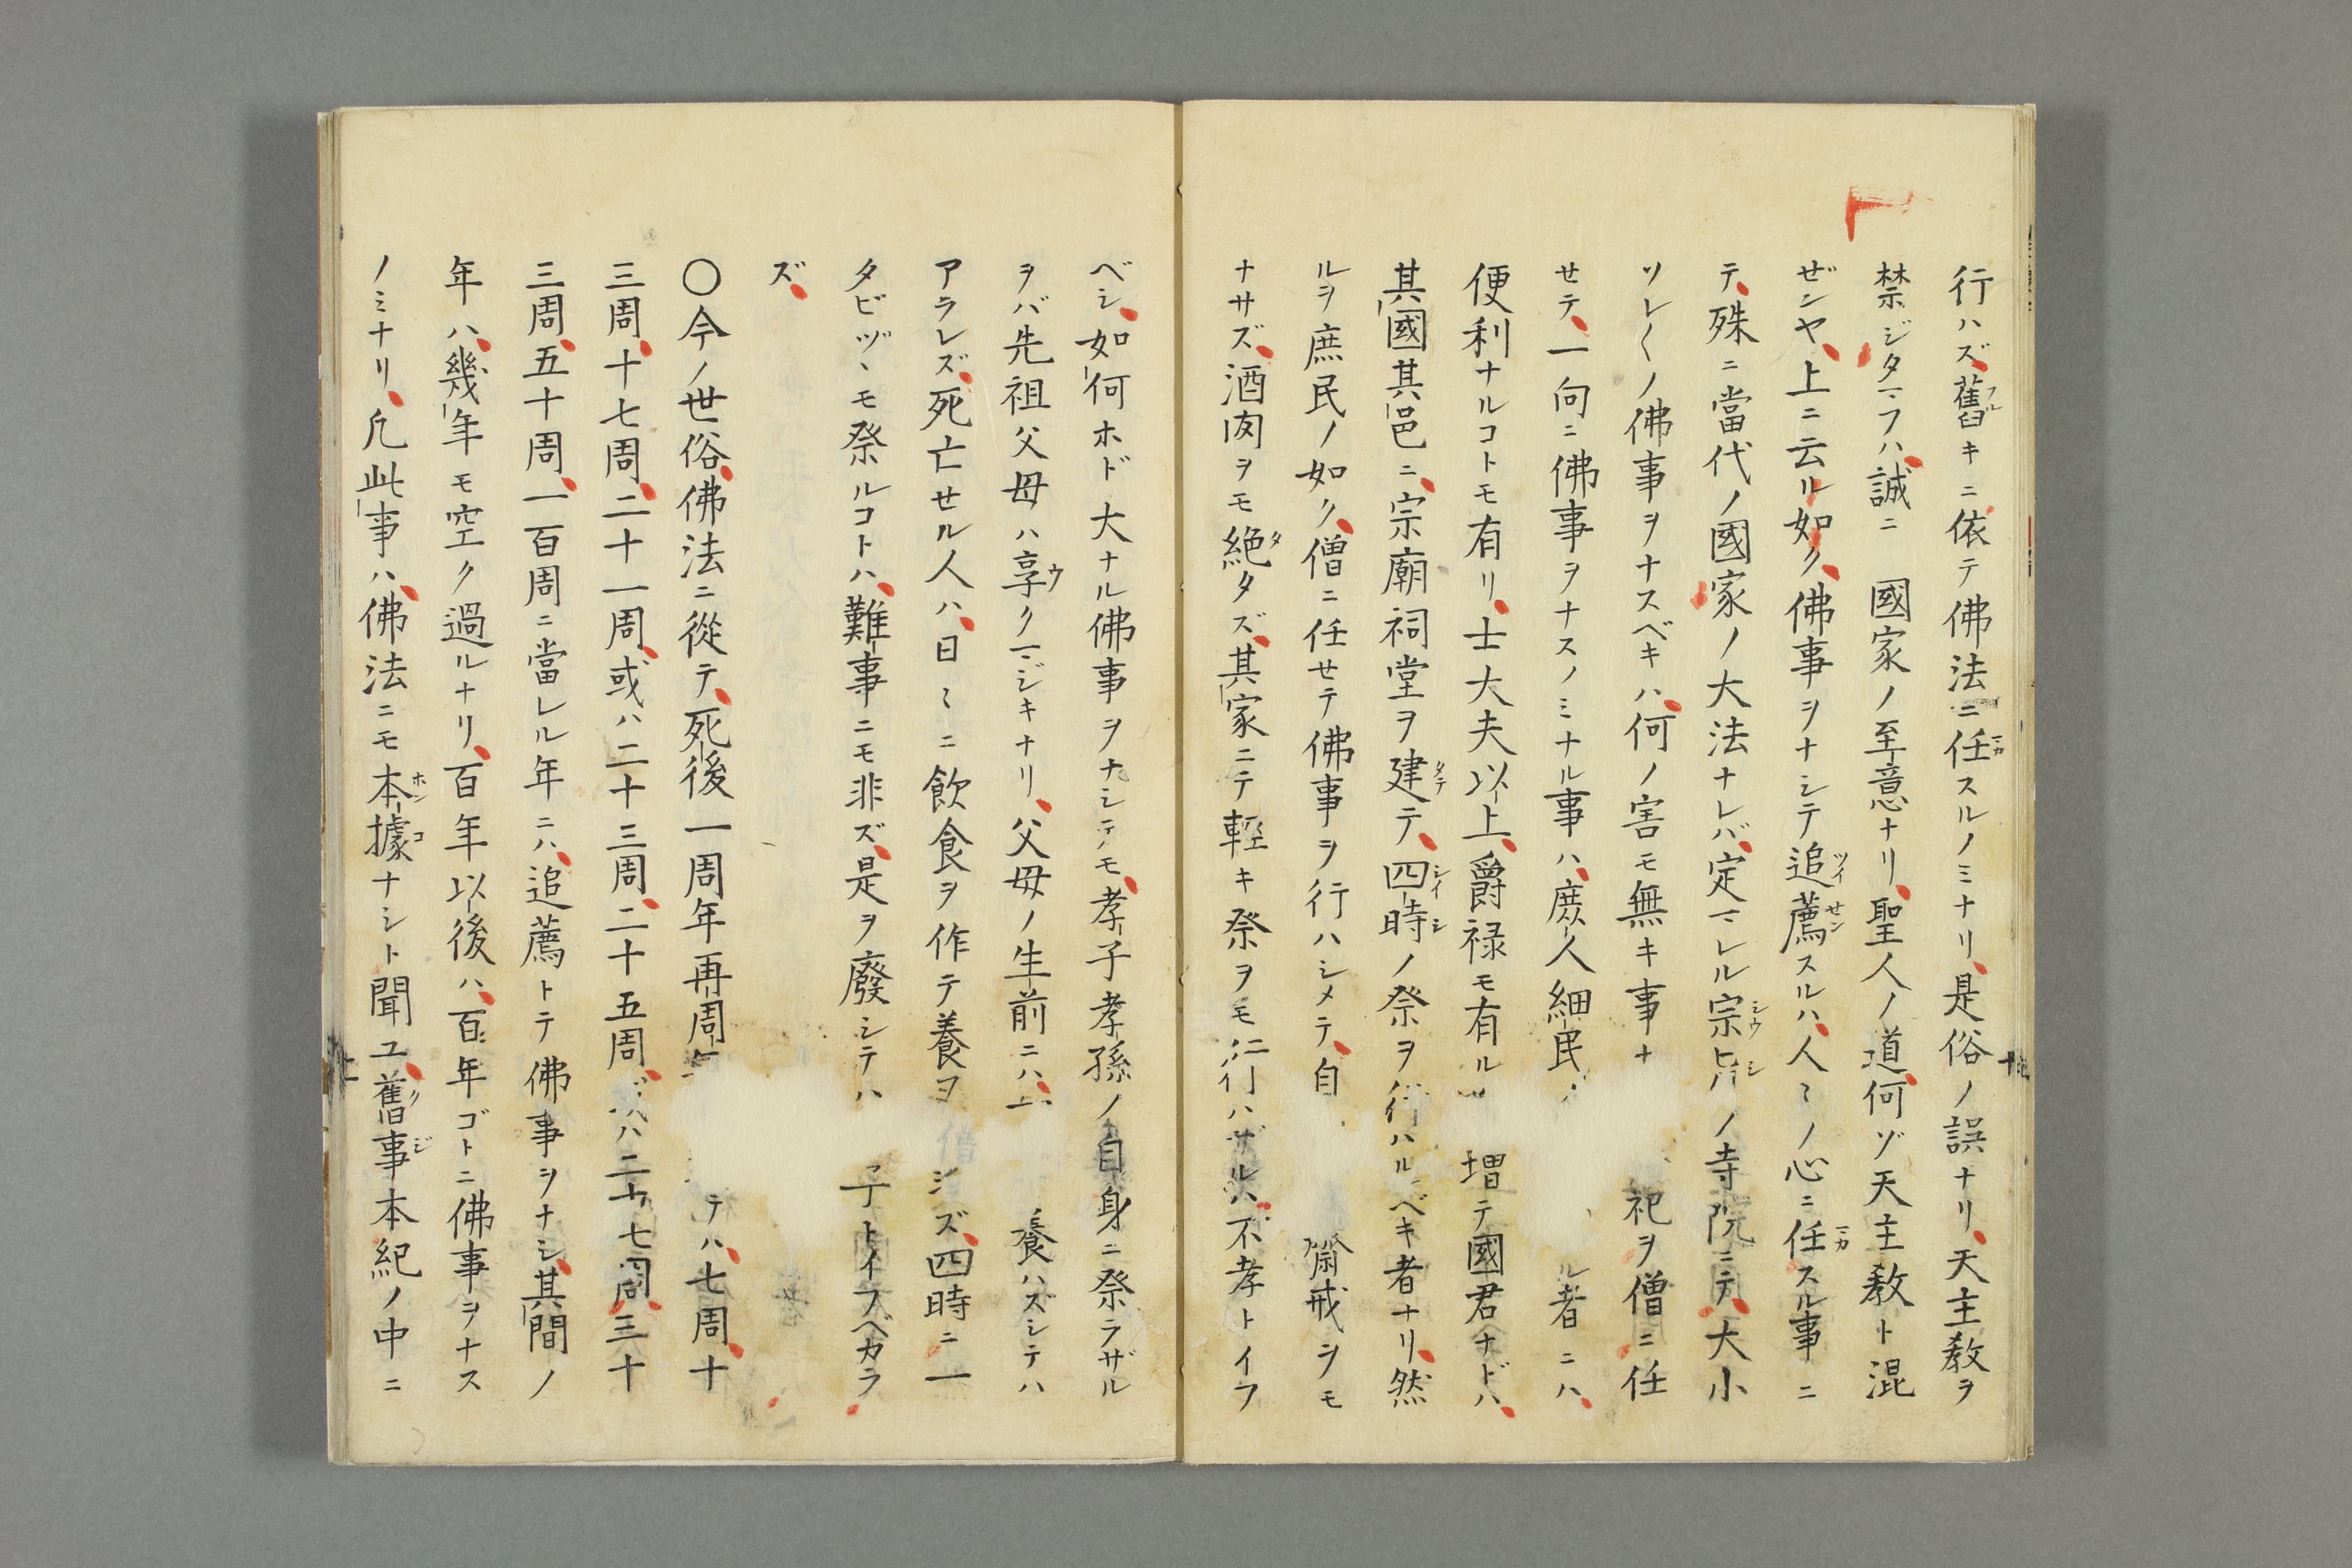 行ハズ、舊キニ依テ佛法ニ任スルノミナリ、是俗ノ誤ナリ、天主教ヲ
禁ジタマフハ、誠ニ　國家ノ至意ナリ、聖人ノ道、何ゾ天主教ト混
ぜンヤ、上ニ云ル如ク、佛事ヲナシテ追薦スルハ、人々ノ心ニ任スル事ニ
テ、殊ニ當代ノ國家ノ大法ナレバ、定マレル宗旨ノ寺院ニテ、大小
ソレ〱ノ佛事ヲナスベキハ、何ノ害モ無キ事ナ　祀ヲ僧ニ任
せテ、一向ニ佛事ヲナスノミナル事ハ、庶人細民ノ　ル者ニハ、
便利ナルコトモ有リ、士大夫以上、爵禄モ有ル　増テ國君ナドハ、
其國其邑ニ、宗廟祠堂ヲ建テ、四時ノ祭ヲ行ハルベキ者ナリ、然
ルヲ庶民ノ如ク、僧ニ任せテ佛事ヲ行ハシメテ、自　齋戒ヲモ
ナサズ、酒肉ヲモ絶タズ、其家ニテ輕キ祭ヲモ行ハザルハ、不孝トイフ
ベシ、如何ホド大ナル佛事ヲナシテモ、孝子孝孫ノ自身ニ祭ラザル
ヲバ先祖父母ハ享クマジキナリ、父母ノ生前ニハ、　養ハズシテハ
アラレズ、死亡せル人ハ、日々ニ飲食ヲ作テ養ヲ　シズ、四時ニ一
タビヅヽモ祭ルコトハ、難事ニモ非ズ、是ヲ廢シテハ　子トイフベカラ
ズ、
〇今ノ世俗、佛法ニ從テ、死後一周年再周年　テハ、七周、十
三周、十七周、二十一周、或ハ二十三周、二十五周、　ハ二十七周、三十
三周、五十周、一百周ニ當レル年ニハ、追薦トテ佛事ヲナシ、其間ノ
年ハ、幾年モ空ク過ルナリ、百年以後ハ、百年ゴトニ佛事ヲナス
ノミナリ、凡此事ハ、佛法ニモ本據ナシト聞ユ、舊事本紀ノ中ニ